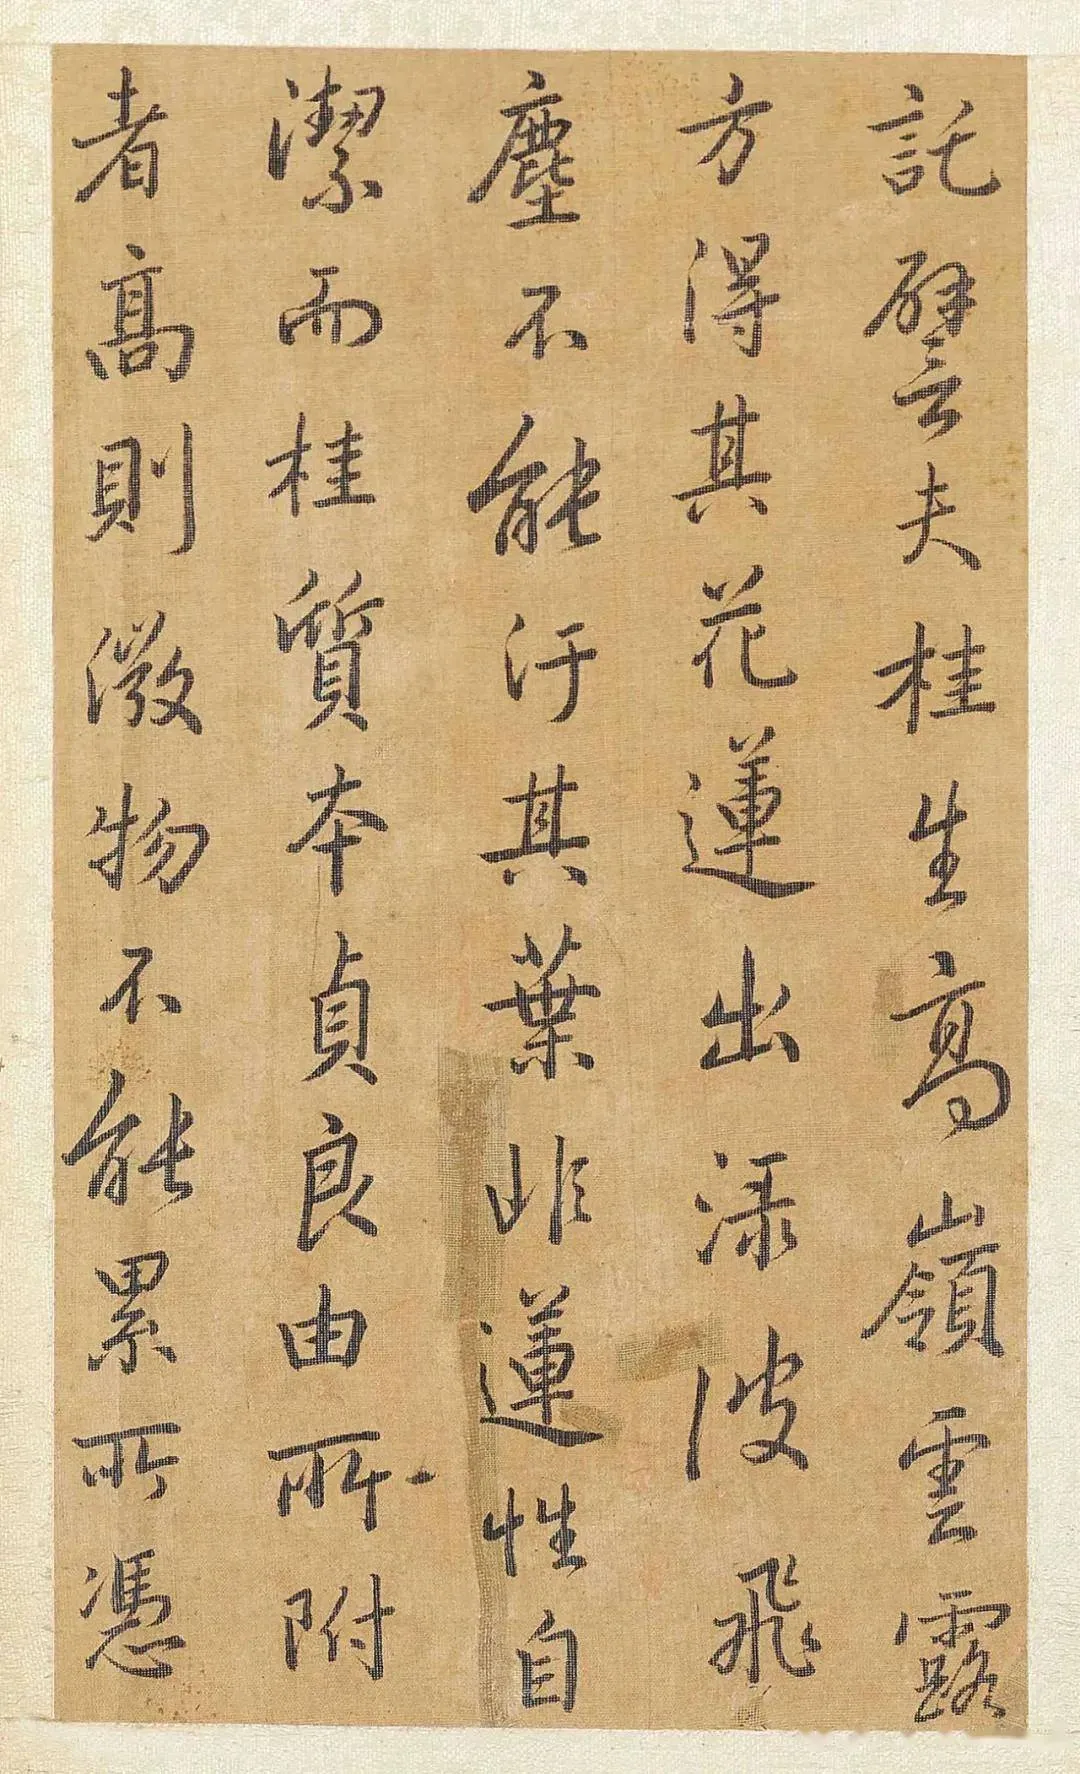 託譬夫桂生高嶺雲露
方得其花蓮出渌波飛
塵不能汙其葉非蓮性自
潔而桂質本貞良由所附
者高則微物不能累所憑